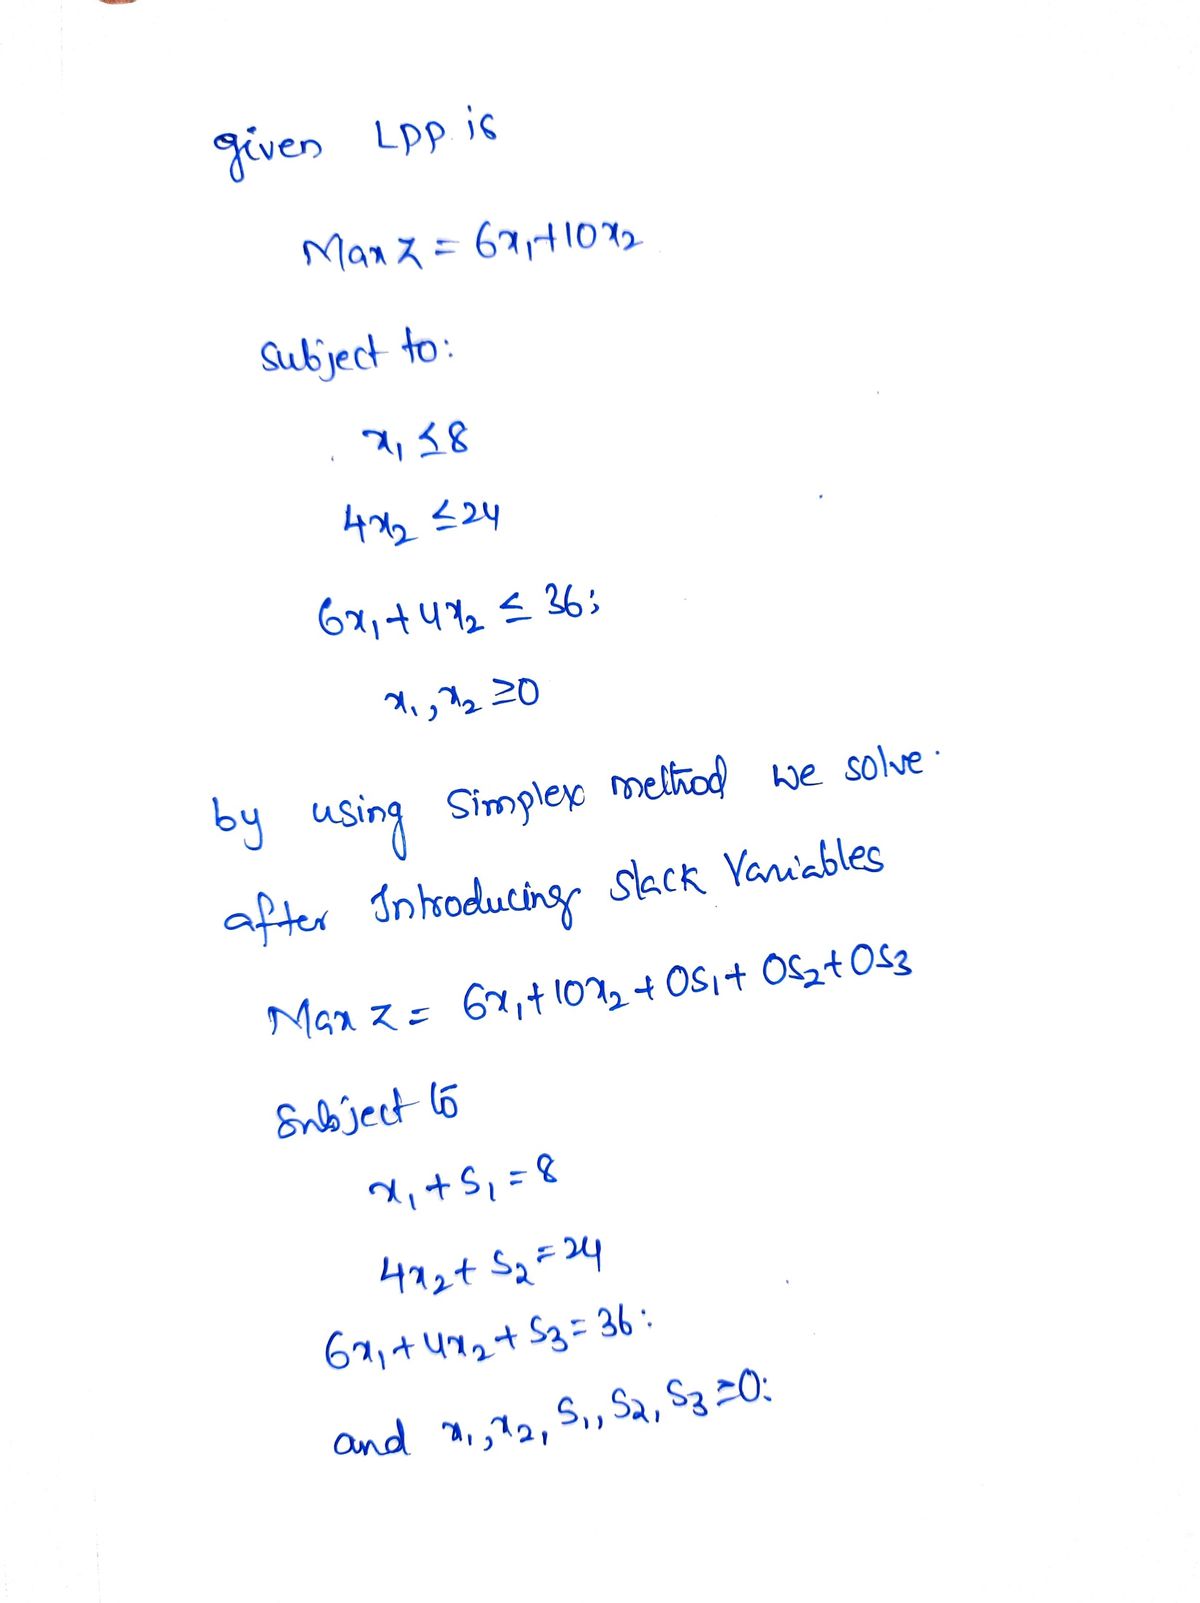 given LPP is
Max Z = 6x₁+10x₂
Subject to:
x₁ ≤8
4x₂ ≤24
6x₁+4x₂ ≤ 36;
x₁,x₂ ≥0
by using Simplex method we solve.
after Introducing Slack Variables
Max Z = 6x₁+10x₂+0S₁+0S₂+0S₃
Subject to
x₁+S₁=8
4x₂+S₂=24
6x₁+4x₂+S₃=36:
and x₁,x₂,S₁,S₂,S₃≥0: